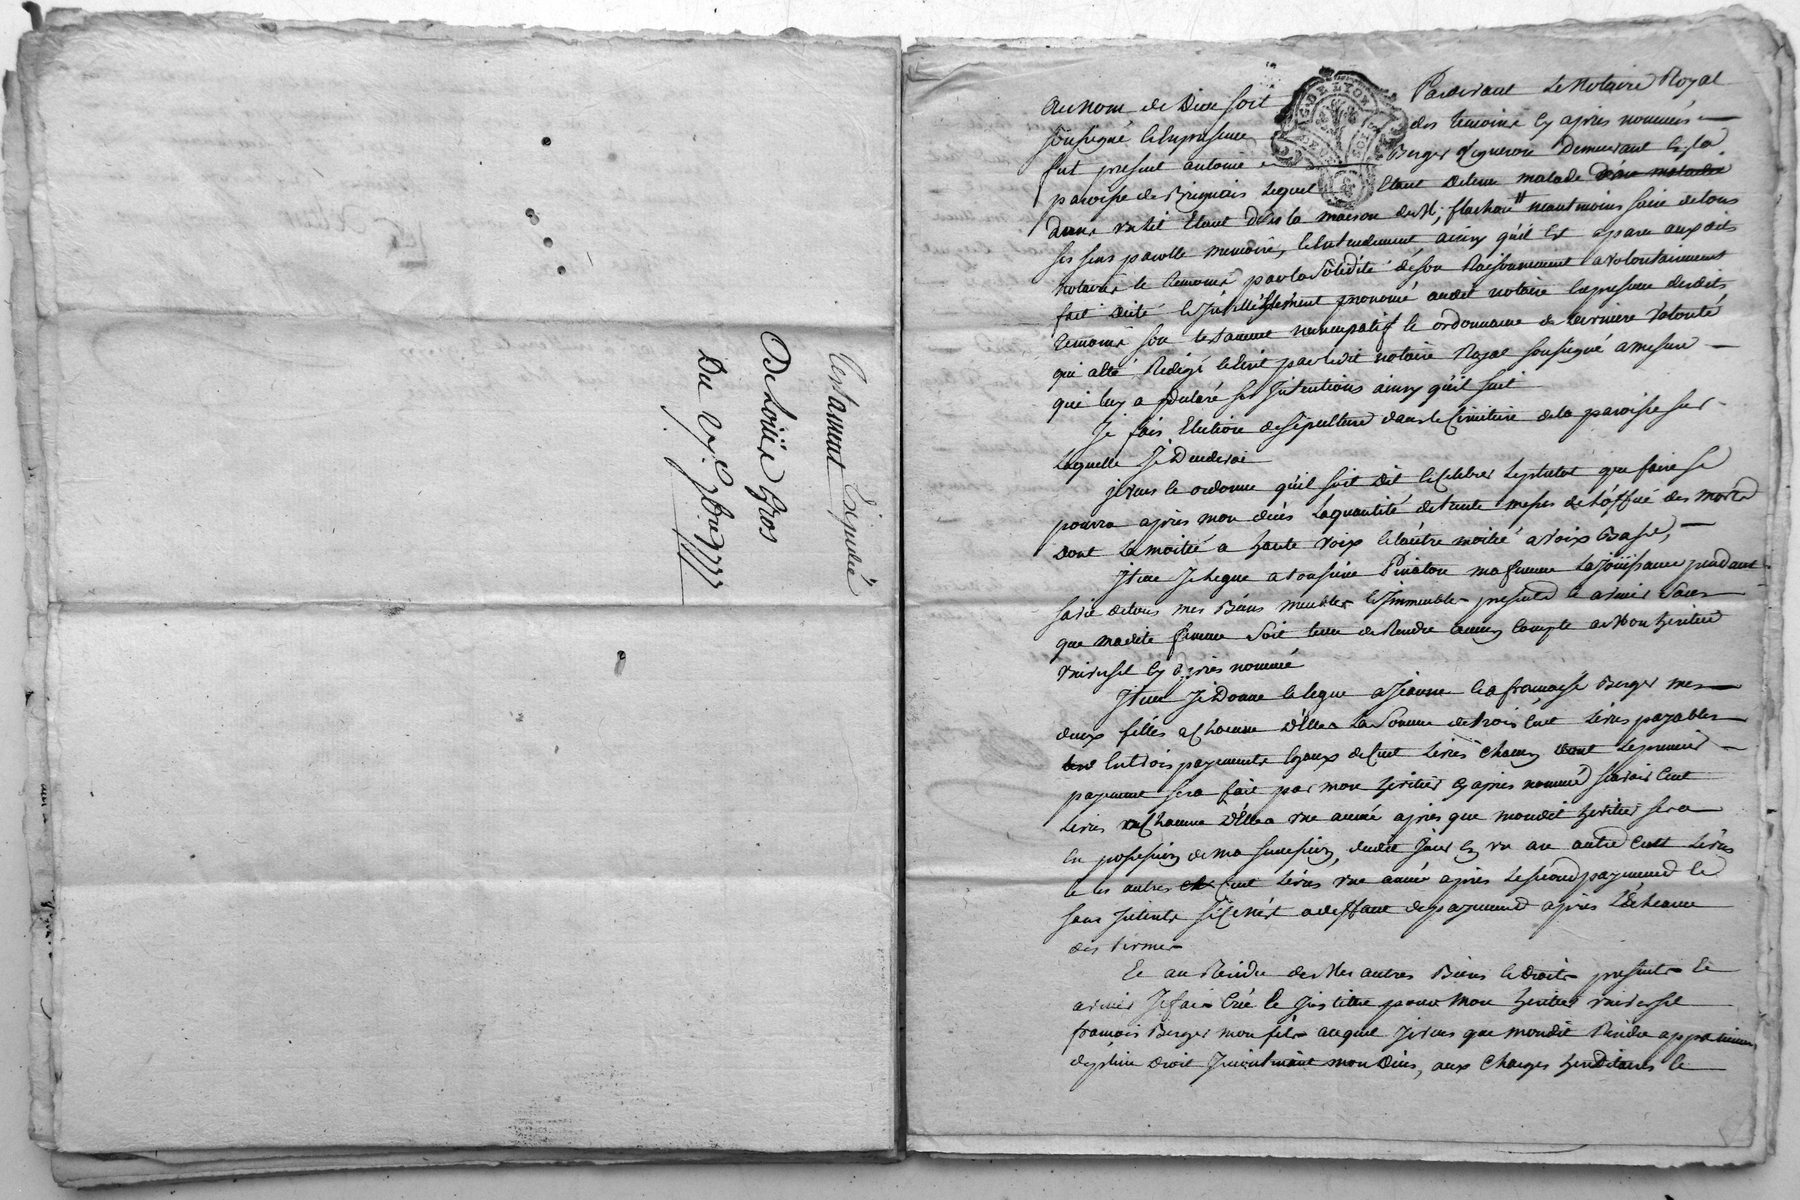 Testament Expedié
De Loüise Gros
Du
Au nom de Dieu soit Pardevant Le Notaire Royal
soussigné et en presence des temoins cy apres nommés
fut present antoine Berger Vigneron Demeurant en la
paroisse de Brignais Lequel Etant detenu malade d'une maladie
dans un lit Etant dans la maison de M. flachon neantmoins sain de tous
ses sens parolle memoire, et entendement ainsy qu'il est aparu auxdits
notaire et temoins par la solidité de son Raisonnement a volontairement
fait dicté et intelligiblement prononcé audit notaire en presence desdits
temoins son testament nuncupatif et ordonnance de derniere Volonté
qui a été Redigé et Ecrit par ledit notaire Royal soussigné a mesure
qui luy a declaré ses Intentions ainsy qu'il suit
Je fais Election de sepulture dans le Cimitiere de la paroisse sur
laquelle Je Decederai
je veus et ordonne qu'il soit dit et Celebrer Le plutot que faire se
pourra après mon décés La quantité de trente messes de L'office des morts
dont La moitié a haute Voix et L'autre moitié a Voix Basse,
Item Je Legue a ma femme La joüissance pendant
sa vie de tous mes Biens meubles et Immeubles presents et avenir sans
que madite femme soit tenue de Rendre aucun Compte a Mon heritier
universel cy après nommé
Item Je Donne et legue a Jeanne et a françoise Berger mes
deux filles a Chacune D'Elles La Somme de trois Cent Livres payables
En trois payements Egaux de Cent Livres Chacun dont Le premier
payement sera fait par mon heritier cy apres nommé scavoir Cent
Livres a Chacune D'Elles une année après que mondit heritier sera
En possession de ma succession, dudit jour En un an autre Cent Livres
et les autres Cent Livres une année après Le second payement et
sans Interets si Ce n'est a deffaut de payement après L'Echeance
des termes
Et au Residu de Mes autres Biens et droits presents et
avenir Je fais Crée et Institue pour Mon heritier universel
françois Berger mon fils auquel Je veus que mondit Residu appartienne
de plein droit Incontinant mon Décés, aux Charges hereditaires et